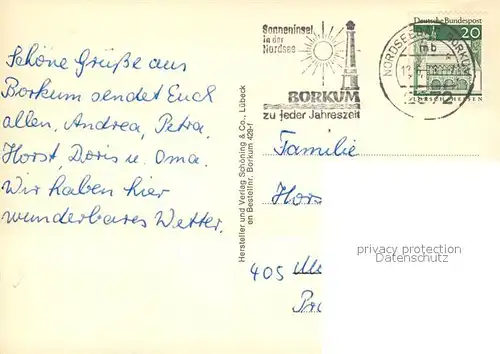 Schöne Grüße aus
Borkum sendet Euch
allen, Andrea, Petra,
Horst, Doris u. Oma.
Wir haben hier
wunderbares Wetter.
Hersteller und Verlag Schöning & Co., Lübeck
en Bestellnr. Borkum 429-f
Sonneninsel
in der
Nordsee
BORKUM
zu jeder Jahreszeit
NORDSEEBAD BORKUM
mb
Deutsche Bundespost
20
LORSCH HESSEN
Familie
Hors
405
privacy protection
VDMedien24.de